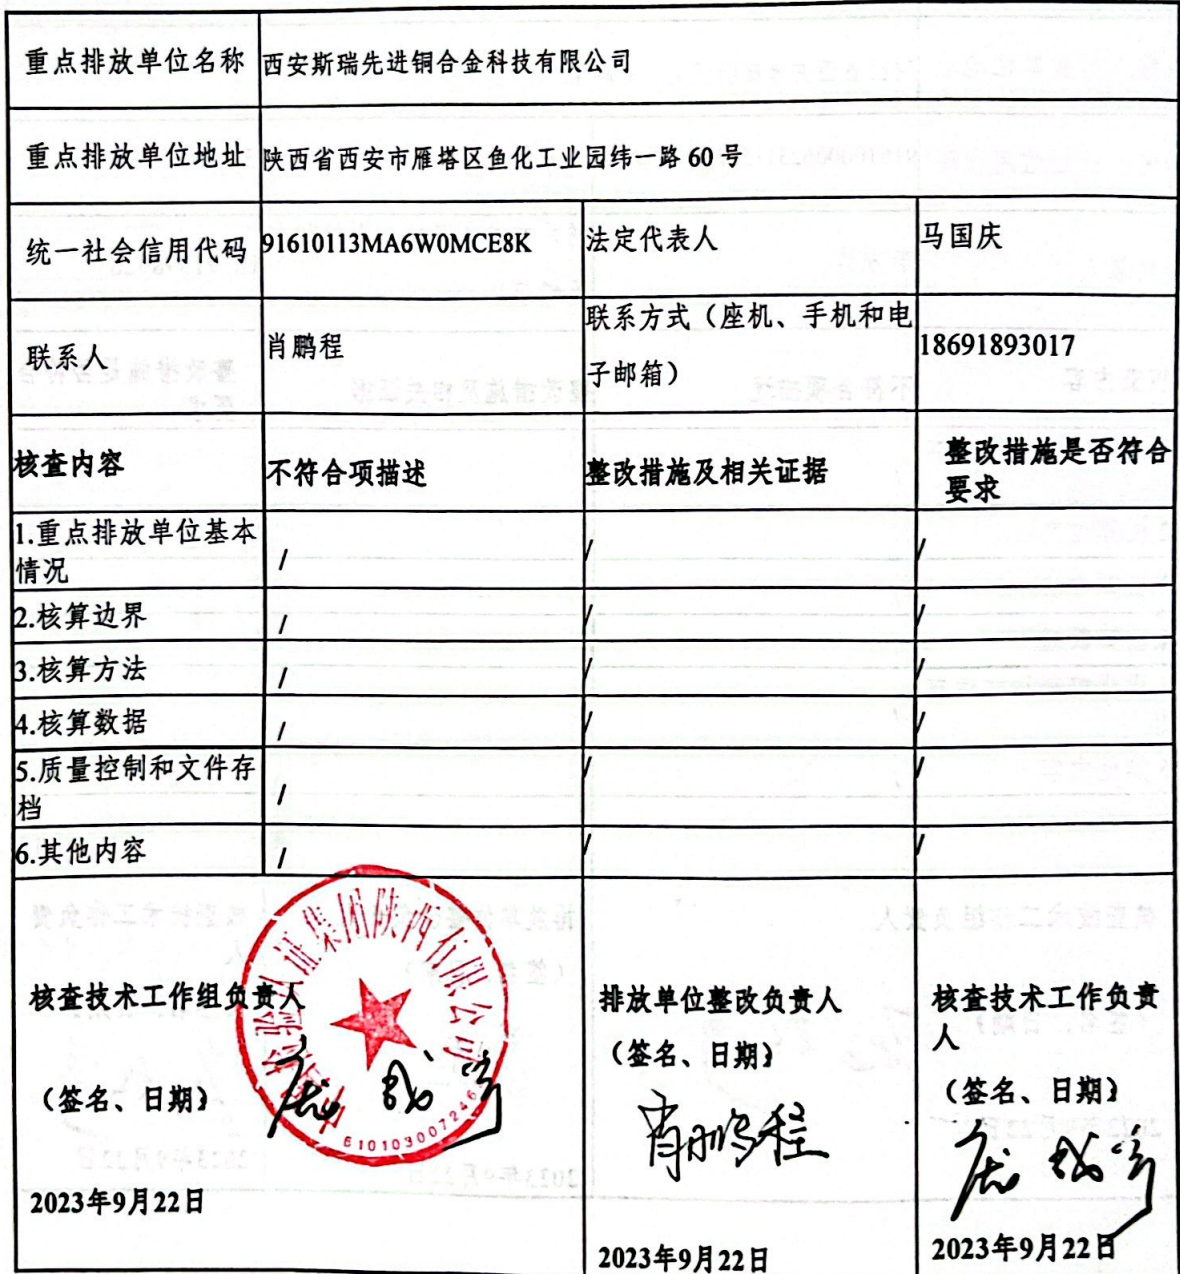 重点排放单位名称 西安斯瑞先进铜合金科技有限公司
重点排放单位地址 陕西省西安市雁塔区鱼化工业园纬一路 60 号
统一社会信用代码 91610113MA6W0MCE8K 法定代表人 马国庆
联系人 肖鹏程 联系方式（座机、手机和电
子邮箱） 18691893017
核查内容 不符合项描述 整改措施及相关证据 整改措施是否符合
要求
1.重点排放单位基本
情况 / / /
2.核算边界 / / /
3.核算方法 / / /
4.核算数据 / / /
5.质量控制和文件存
档 / / /
6.其他内容 / / /
核查技术工作组负责人
（签名、日期）
2023年9月22日
验认证集团陕西有限公司
610103007246
排放单位整改负责人
（签名、日期）
肖鹏程
2023年9月22日
核查技术工作负责
人
（签名、日期）
2023年9月22日